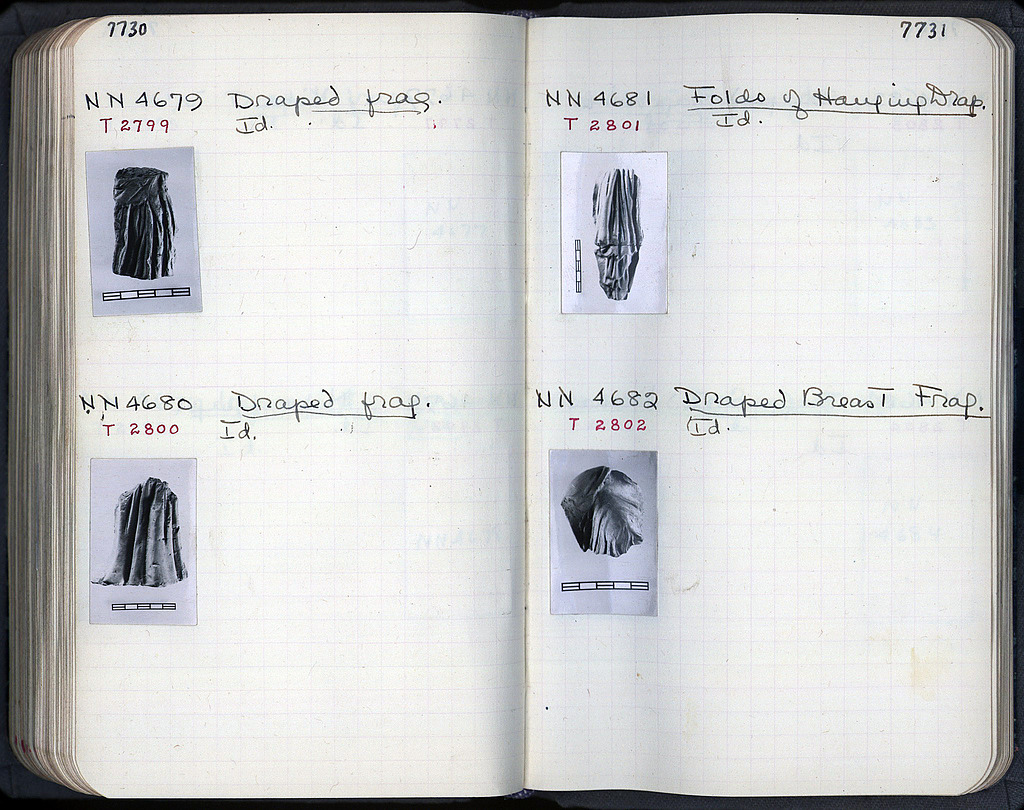 7730
NN 4679 Draped frag.
T 2799 Id.
NN 4680 Draped frag.
T 2800 Id.
7731
NN 4681 Folds of Hanging Drap.
T 2801 Id.
NN 4682 Draped Breast Frag.
T 2802 Id.